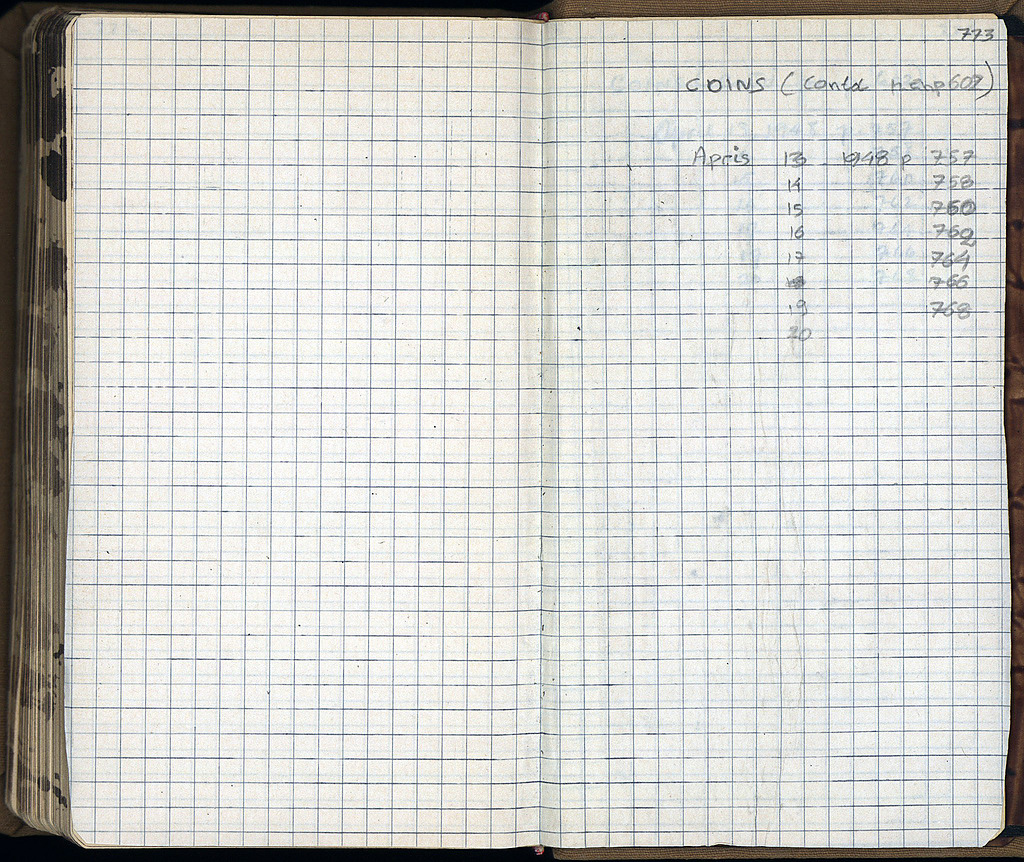 773
COINS (contd p 607)
April 13 1948 p 757
14 758
15 760
16 762
17 764
18 766
19 768
20